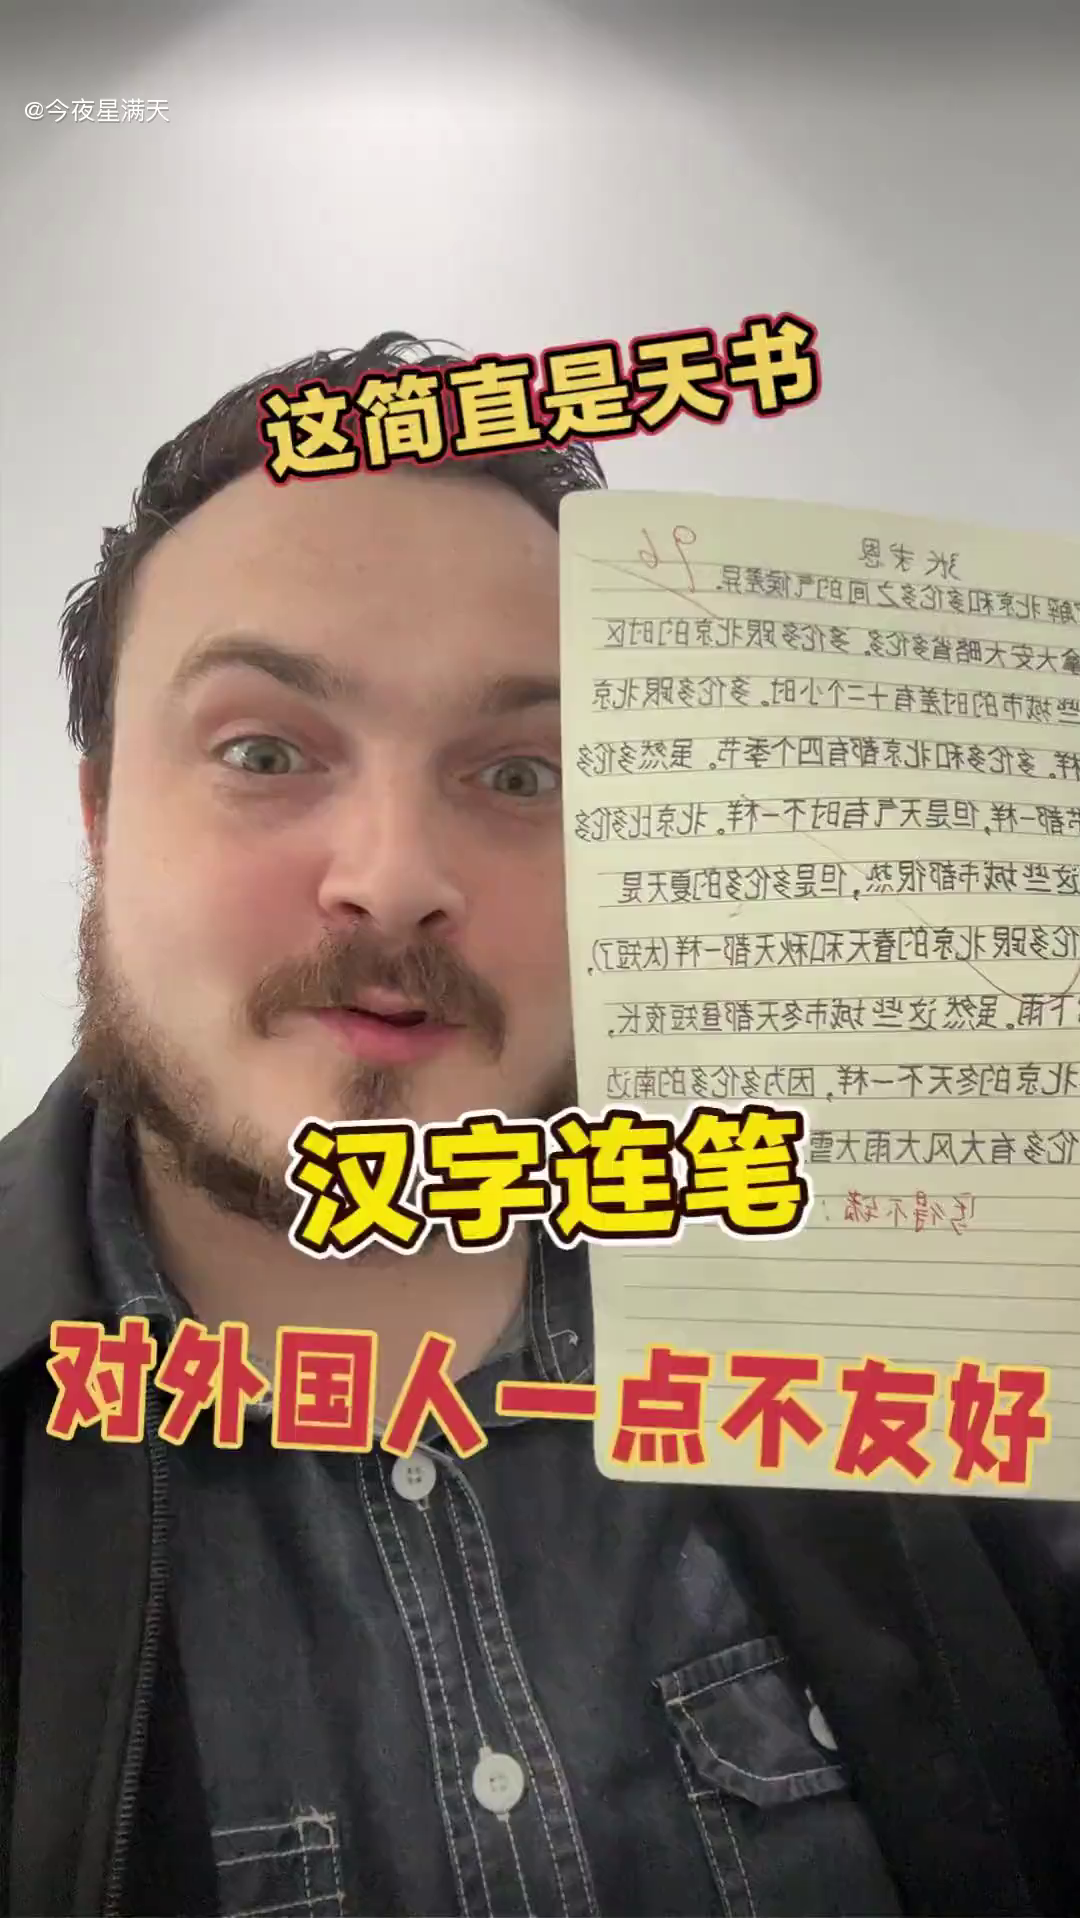 @今夜星满天
这简直是天书
张求恩
96
解北京和多伦多之间的气候差异.
拿大安大略省多伦多。多伦多跟北京的时区
些城市的时差有十二个小时。多伦多跟北京
样。多伦多和北京都有四个季节。虽然多伦多
节都一样,但是天气有时不一样。北京比多伦多
这些城市都很热,但是多伦多的夏天是
伦多跟北京的春天和秋天都一样(太短了),
下雨。虽然这些城市冬天都昼短夜长,
北京的冬天不一样,因为多伦多的南边
伦多有大风大雨大雪
写得不错!
汉字连笔
对外国人一点不友好